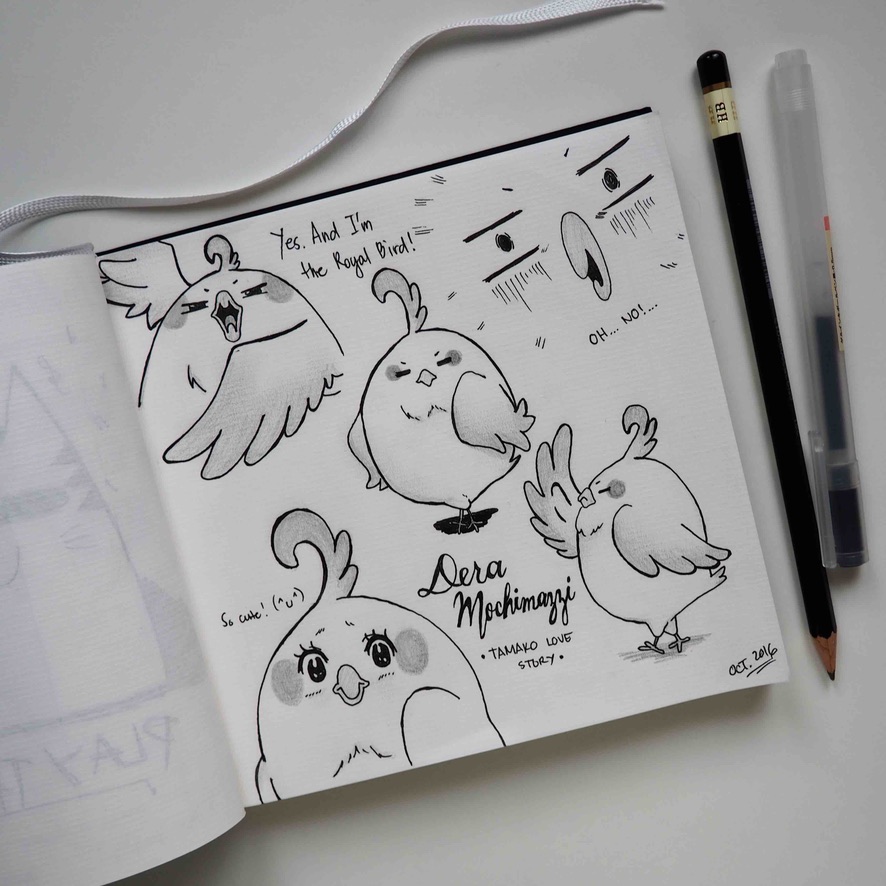 Yes. And I'm
the Royal Bird!
OH... NO!...
So cute! (^u^)
Dera
Mochimazzi
• TAMAKO LOVE
STORY •
OCT. 2016
HB